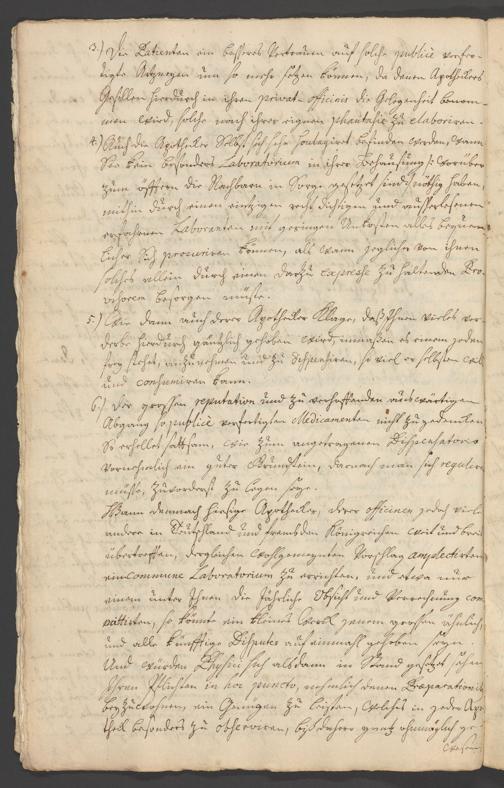 3.) Die Patienten ein besseres Vertrauen auf solche publicè verfer-
tigte Artzneyen um so mehr setzen können, da denen Apothekers
Gesellen hierdurch in ihren privat-officinis die Gelegenheit benom-
men wird, solche nach ihrer eignen phantasie zu elaboriren.
4.) Auch die Apotheker Selbst sich sehr befinden werden, wann
Sie kein besonders Laboratorium in ihrer Behausung /: worüber
zum öfftern die Nachbarn in Sorge gesetzt sind :/ nöthig haben,
mithin durch einen eintzigen recht tüchtigen und auserlesenen
erfahrnen Laboranten mit geringen Unkosten alles bequem
licher procuriren können, als wann jeglicher von ihnen
solches allein durch einen darzu expresse zu haltenden Pro-
visorem besorgen müste.
5.) Wie dann auch derer Apotheker Klage, daß Ihnen vieles ver-
derbe hierdurch gäntzlich gehoben wird, immaßen es einem jeden
frey stehet, anzunehmen und zu, so viel er selbsten
und consumiren kann.
6.) Der grossen reputation und zu verhoffenden auswärtigen
Abgang so publicè verfertigten Medicamenten nicht zu gedencken
So erhellet sattsam, wie zum angetragenen Dispensatorio
vornehmlich ein guter Grundstein, darnach man sich reguliren
müste, zuvorderst zu legen seye.
Wann demnach hiesige Apotheker, derer officinen jedoch viele
andere in Deutschland und frembden Königreichen weit und breit
übertreffen, dergleichen wohlgemeynten Vorschlag amplectirten
ein commune Laboratorium zu errichten, und etwa nur
einen unter Ihnen die jährliche Obsicht und Verrechnung com
mittirten, so könnte ein kleines Werk jenem grossen ähnlich,
und alle künfftige Disputes auf einmahl gehoben seyn.
Und würden Physici sich alsdann in Stand gesetzt sehen
Ihren Pflichten in hoc puncto, nehmlich denen Praeparationibus
beyzuwohnen, ein Genügen zu leisten, welches in jeder Apo
thek besonders zu observiren, bißdahero gantz ohnmöglich ge-
wesen